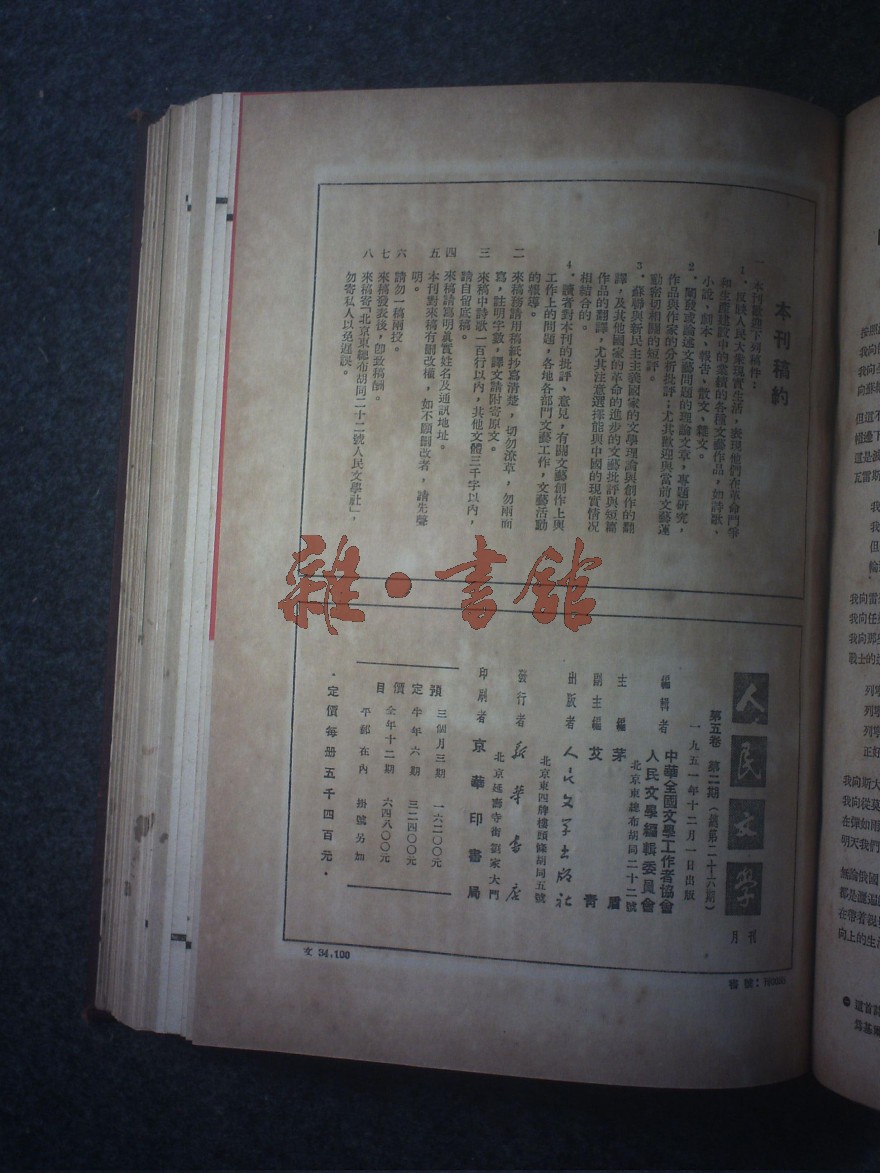 本刊稿約
一 本刊歡迎下列稿件：
1．反映人民大衆現實生活，表現他們在革命鬥爭
和生產建設中的業績的各種文藝作品，如詩歌、
小說、劇本、報告、散文、雜文。
2．闡發或論述文藝問題的理論文章，專題研究，
作品與作家的分析批評；尤其歡迎與當前文藝運
動密切相關的短評。
3．蘇聯與新民主主義國家的文學理論與創作的翻
譯，及其他國家的革命的進步的文藝批評與短篇
作品的翻譯，尤其注意選擇能與中國的現實情况
相結合的。
4．讀者對本刊的批評、意見，有關文藝創作上與
工作上的問題，各地各部門文藝工作，文藝活動
的報導。
二 來稿務請用稿紙抄寫清楚，切勿潦草，勿兩面
寫，註明字數，譯文請附寄原文。
三 來稿中詩歌一百行以內，其他文體三千字以內，
請自留底稿。
四 來稿請寫明眞實姓名及通訊地址。
五 本刊對來稿有删改權，如不願删改者，請先聲
明。
六 請勿一稿兩投。
七 來稿發表後，卽致稿酬。
八 來稿寄「北京東總布胡同二十二號人民文學社」，
勿寄私人以免遲誤。
雜·書館
人民文學
月刊
第五卷 第二期（總第二十六期）
一九五一年十二月一日出版
編輯者 中華全國文學工作者協會
人民文學編輯委員會
北京東總布胡同二十二號
主編 茅盾
副主編 艾青
出版者 人民文學出版社
北京東四牌樓頭條胡同五號
發行者 新華書店
印刷者 京華印書局
北京延壽寺街劉家大門
預定價目
三個月三期 一六二〇〇元
半年六期 三二四〇〇元
全年十二期 六四八〇〇元
平郵在內 掛號另加
·定價每册五千四百元·
文 34,100